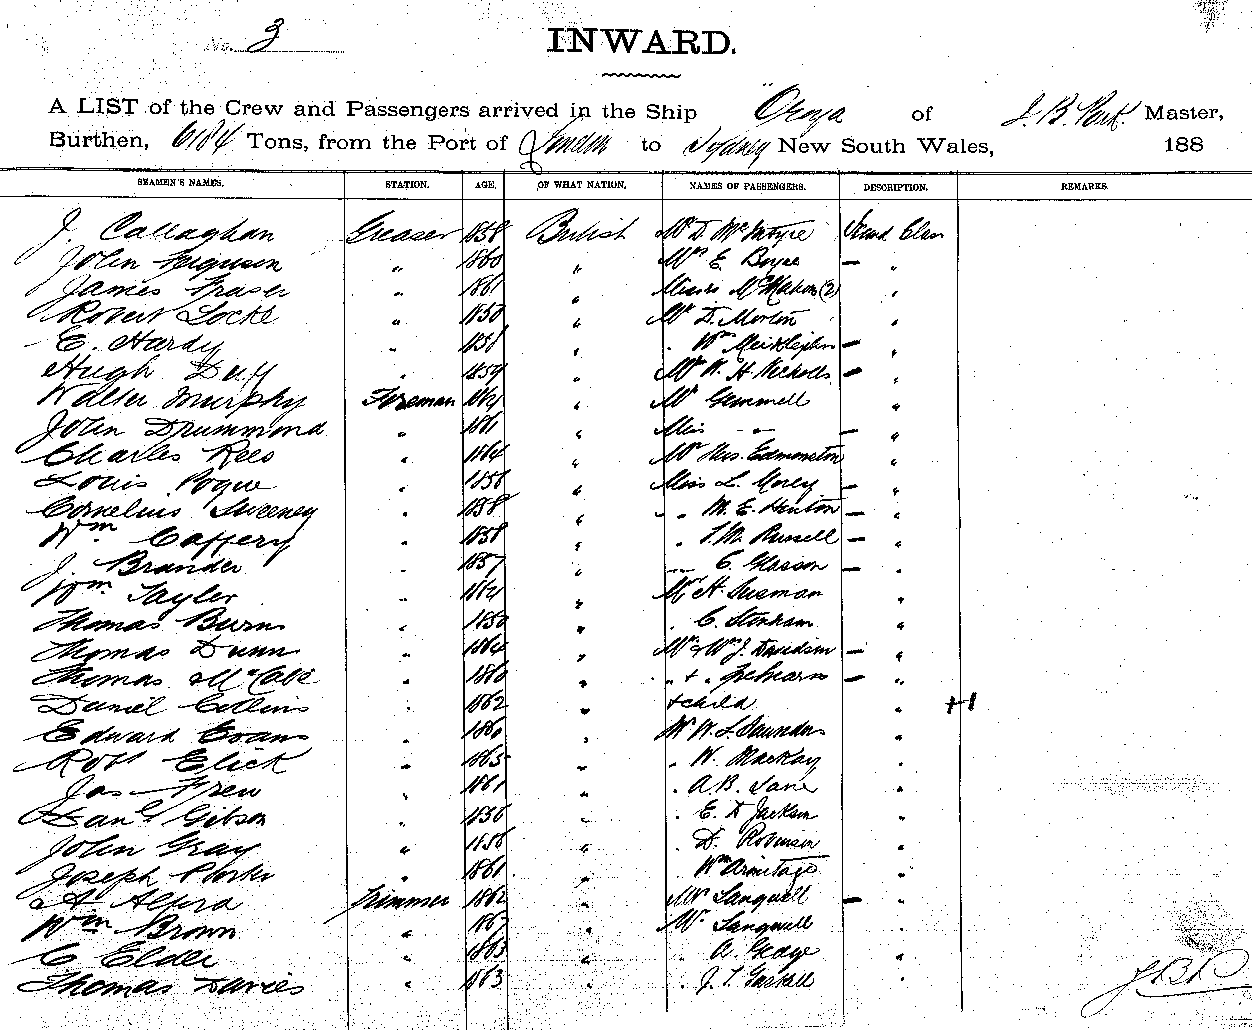 No. 3
INWARD.
A LIST of the Crew and Passengers arrived in the Ship "Oroya of J. B. Park Master,
Burthen, 6184 Tons, from the Port of London to Sydney New South Wales, 188
SEAMEN'S NAMES. STATION. AGE. OF WHAT NATION. NAMES OF PASSENGERS. DESCRIPTION. REMARKS.
J. Callaghan Greaser 1858 British Mr D. McIntyre Second Class
John Ferguson " 1860 " Mrs E Boyce — "
James Fraser " 1861 " Misses McMahon (2) "
Robert Locke " 1850 " Mr D. Morton "
E. Hardy " 1858 " " Wm — "
Hugh Duff " 1859 " Mr W. H. Nicholls — "
Walter Murphy Fireman " Mr Gemmell "
John Drummond " 1861 " Miss — " — — "
Charles Rees " 1864 " Mr Edmonston "
Louis Pogue " 1856 " Miss L. Morey — "
Cornelius Sweeney " 1858 " " M. E. Henton — "
Wm Caffery " 1858 " " Russell — "
J. Brander " 1857 " " C. Glasson — "
Wm Tayler " " Mr H. Susman "
Thomas Burns " 1850 " " C. Stenham "
Thomas Dunn " 1864 " J. Davidson — "
Thomas McCabe " 1860 " " + " — "
Daniel Collins " 1862 " + child " H
Edward Evans " 1860 " Mr W. L. Saunders "
Robt Elick " 1865 " " W. MacKay "
Jas Frew " 1861 " " A. B. Lane "
Danl Gibson " 1856 " " E. D Jackson "
John Gray " 1856 " " D. Robinson "
Joseph " 1861 " Wm Armitage "
Trimmer 1862 " Langwell — "
Wm Brown " 1867 " Mr Langwell "
C Elder " 1863 " " A. Gedge "
Thomas Davies " 1863 " " J. T. Gaskell "
J.B.P.